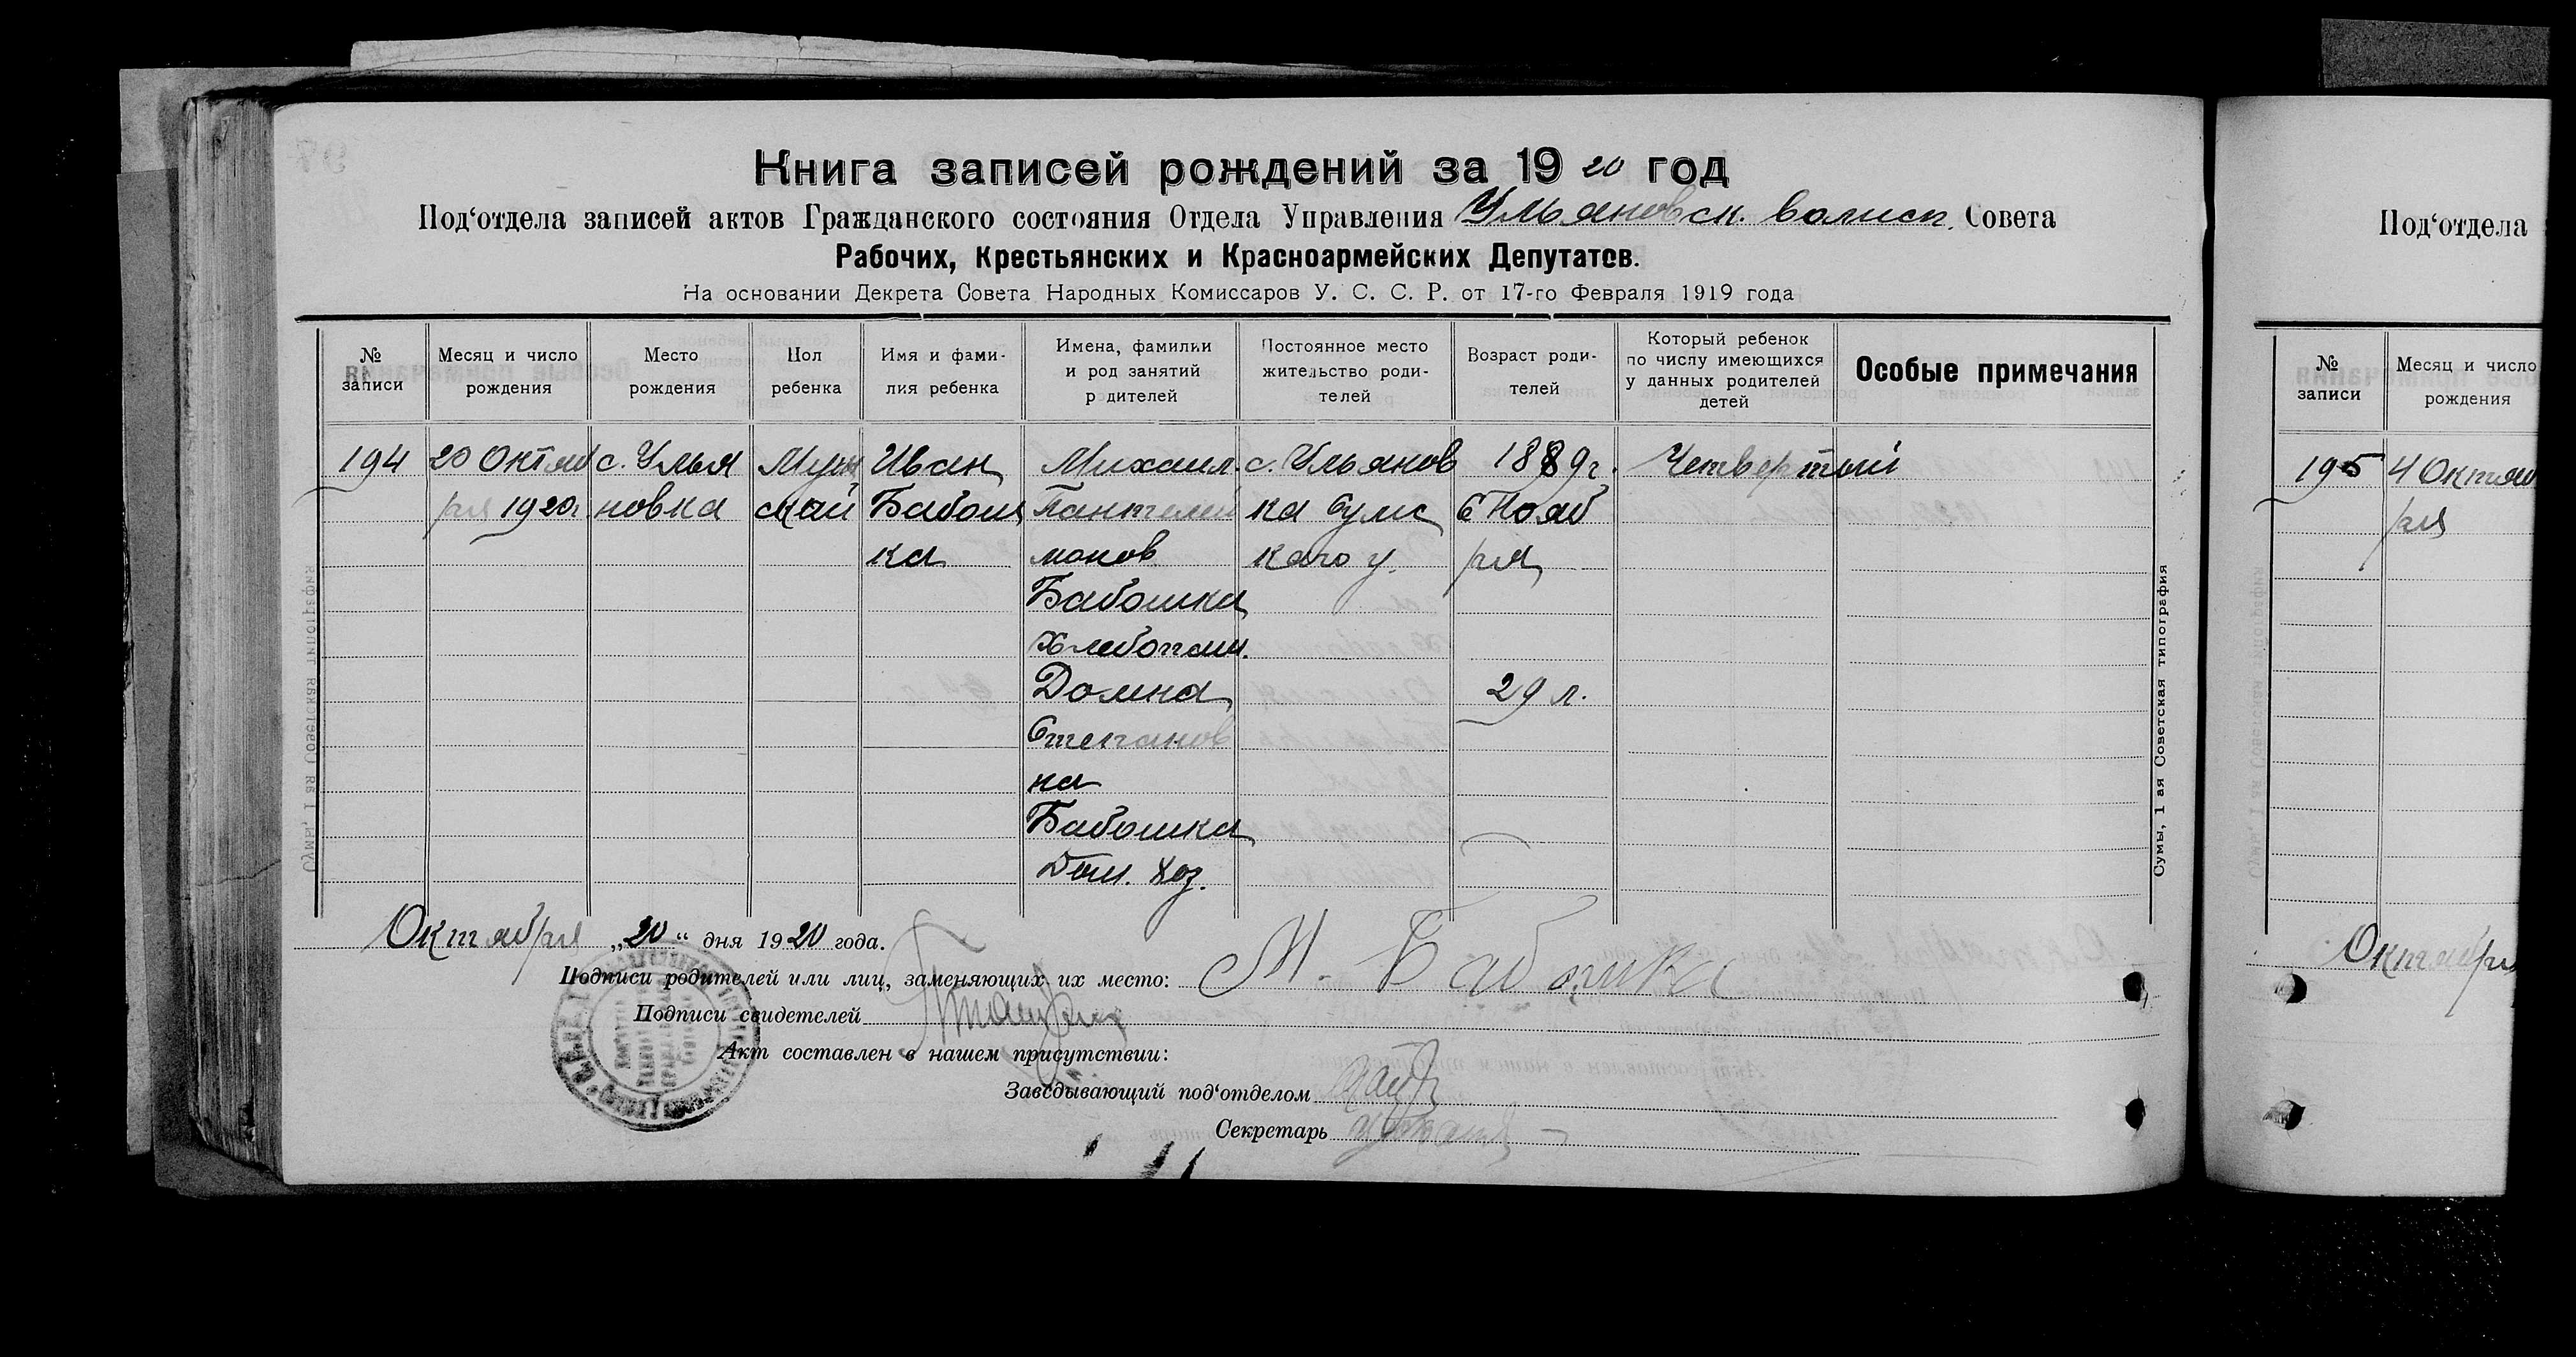 Книга записей рождений за 1920 год
Под‘отдела записей актов Гражданского состояния Отдела Управления Ульяновск. волисп. Совета
Рабочих, Крестьянских и Красноармейских Депутатов.
На основании Декрета Совета Народных Комиссаров У. С. С. Р. от 17-го Февраля 1919 года
№ записи
Месяц и число рождения
Место рождения
Пол ребенка
Имя и фами-
лия ребенка
Имена, фамильи
и род занятий
р дителей
Постоянное место
жительство роди-
телей
Возраст роди-
телей
Который ребенок
по числу имеющихся
у данных родителей
детей
Особые примечания
194
20 Октяб
ря 1920г
с. Улья
новка
Муж
ской
Иван
Бабош
ка
Михаил
Пантелей
монов
Бабошка
Хлебопаш.
Домна
Степанов
на
Бабошка
Дом. хоз.
с. Ульянов
ка Сумс
каго у.
1889г.
6 Нояб
ря
29 л.
Четвертый
Октября „20“ дня 1920 года.
Подписи родителей или лиц, заменяющих их место: М. Бабошка
Подписи свидетелей
Акт составлен в нашем присутствии:
Заведывающий под‘отделом
Секретарь
Сумы, 1 ая Советская типография
Под‘отдела
№ записи
Месяц и число
рождения
195
4 Октяб
ря
Октября